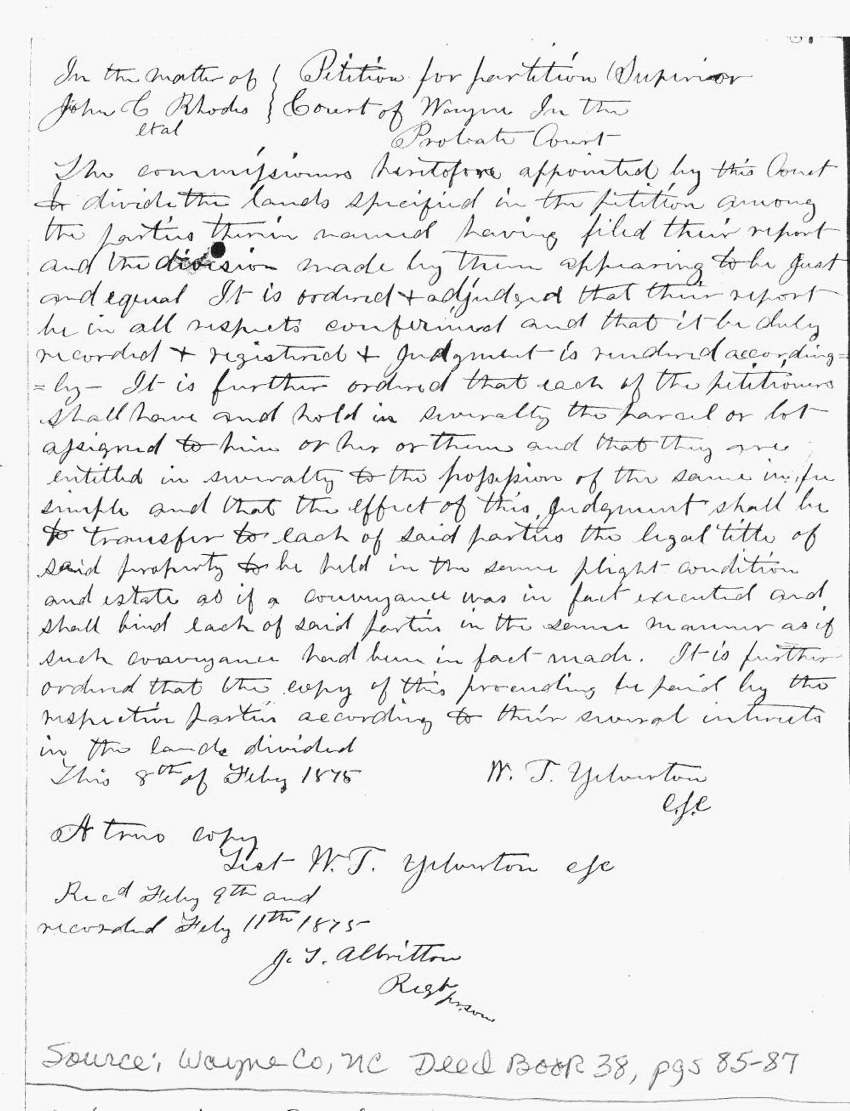 In the matter of } Petition for partition (Superior
John C Rhodes } Court of Wayne In the
et al
Probate Court
The commissioners heretofore appointed by this Court
to divide the lands specified in the petition among
the parties therein named having filed their report
and the division made by them appearing to be just
and equal It is ordered + adjudged that their report
be in all respects confirmed and that it be duly
recorded + registered + Judgment is rendered according=
=ly - It is further ordered that each of the petitioners
shall have and hold in severalty the parcel or lot
assigned to him or her or them and that they are
entitled in severalty to the possession of the same in fee
simple and that the effect of this Judgment shall be
to transfer to each of said parties the legal title of
said property to be held in the same plight condition
and estate as if a conveyance was in fact executed and
shall bind each of said parties in the same manner as if
such conveyance had been in fact made. It is further
ordered that the copy of this proceeding be paid by the
respective parties according to their several interests
in the lands divided
This 8th of Feby 1875 W. T. Yelverton
C.S.C
A true copy
Test W. T. Yelverton csc
Recd Feby 9th and
recorded Feby 11th 1875
J. T. Albritton
Regtr
Source: Wayne Co, NC Deed Book 38, pgs 85-87